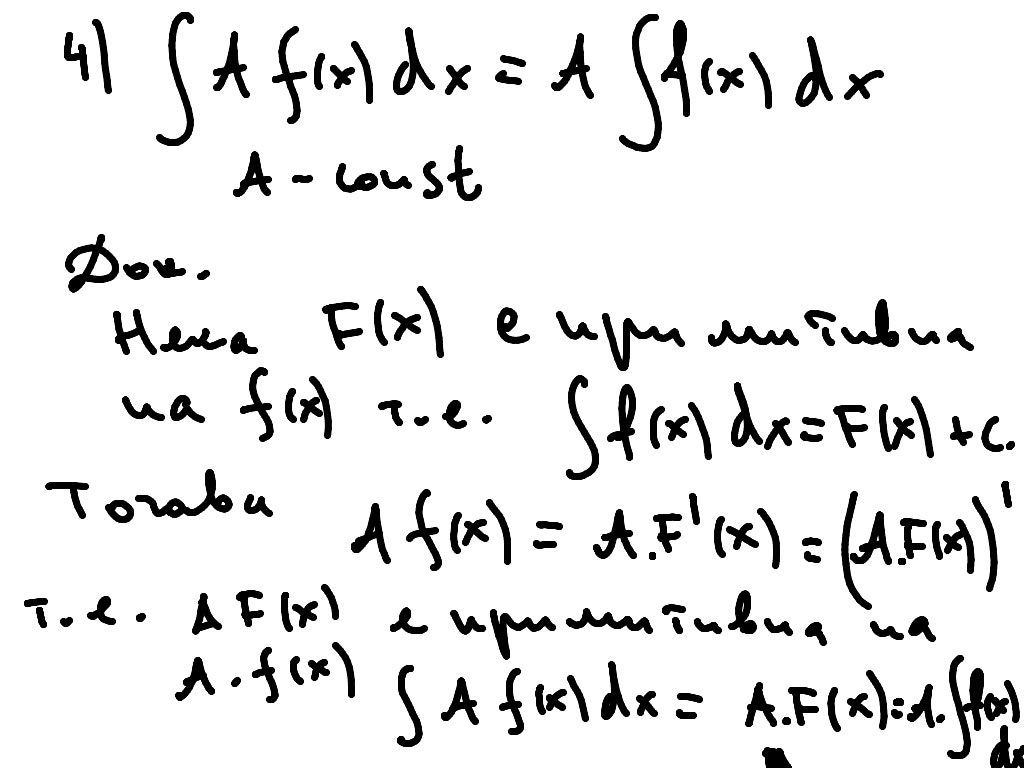 4) ∫ A f(x) dx = A ∫ f(x) dx
A - const
Док.
Нека F(x) е примитивна
на f(x) т.е. ∫ f(x) dx = F(x) + c.
Тогава A f(x) = A.F'(x) = (A.F(x))'
т.е. A F(x) е примитивна на
A.f(x) ∫ A f(x) dx = A.F(x) = A.∫ f(x)
dx